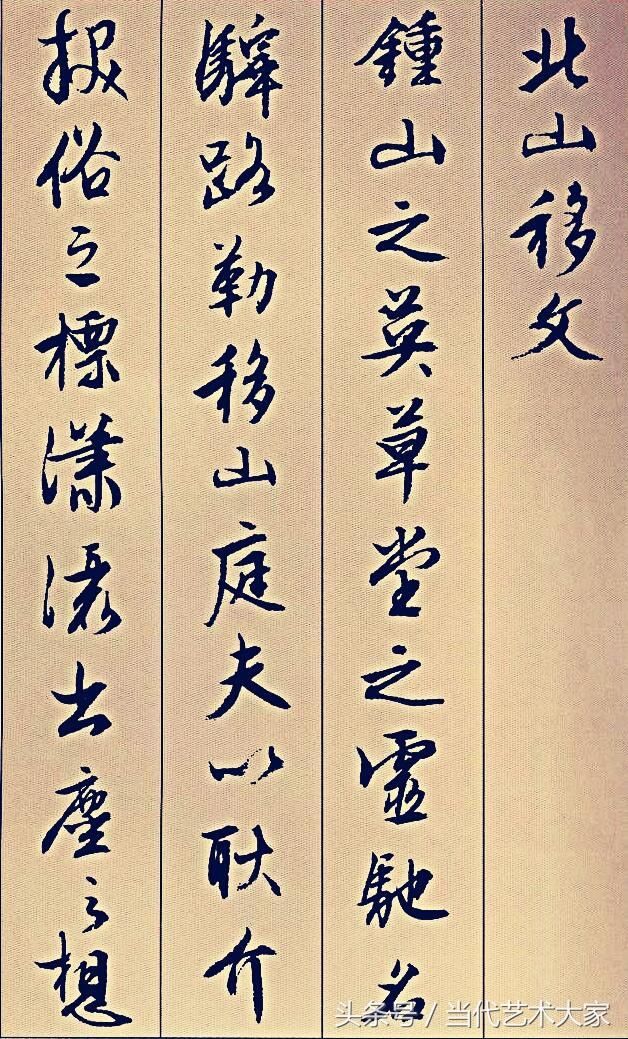 北山移文
鍾山之英草堂之靈馳名
驛路勒移山庭夫以耿介
拔俗之標瀟灑出塵之想
头条号 / 当代艺术大家